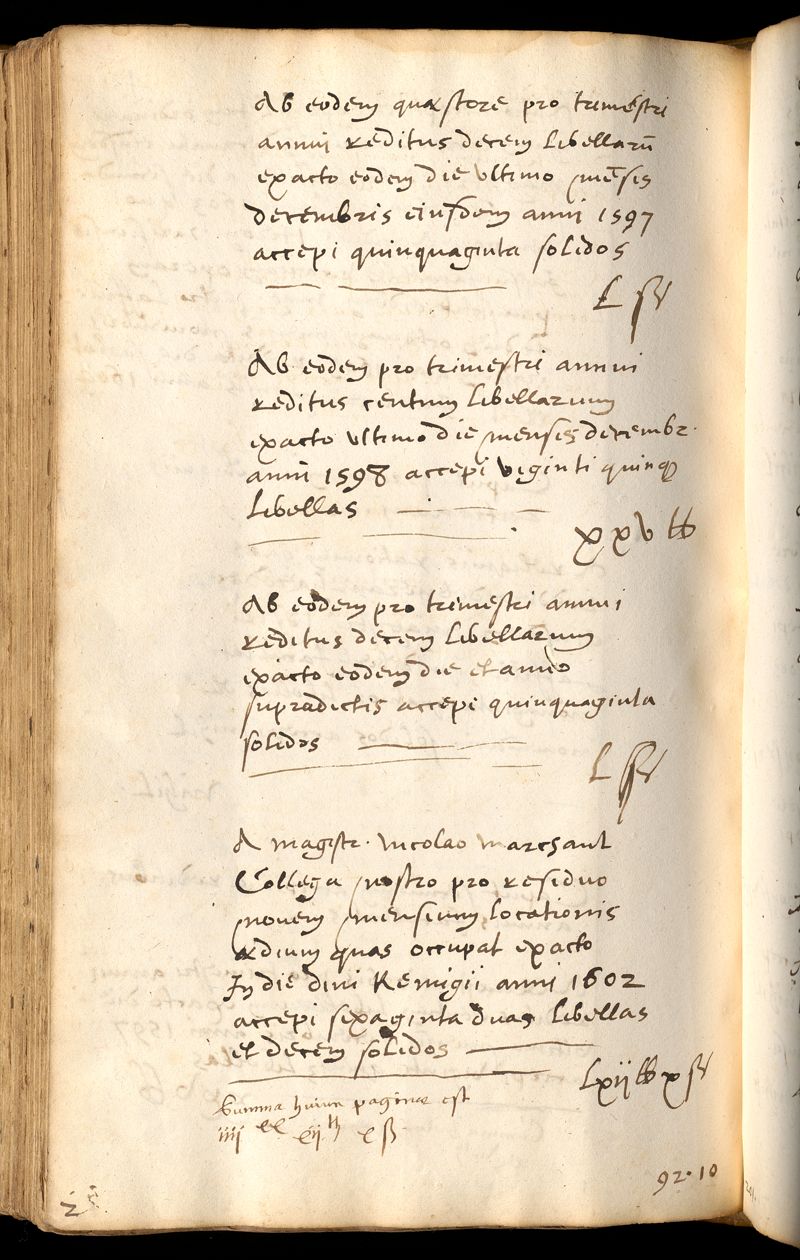 Ab eodem quæstore pro trimestri
annui reditus decem libellarū
exacto eodem die ultimo mēsis
decembris eiusdem anni 1597
accepi quinquaginta solidos
L ß
Ab eodem pro trimestri annui
reditus centum libellarum
exacto ultimo die mensis decembr.
anni 1598 accepi viginti quinq
libellas
xxv lb
Ab eodem pro trimestri annui
reditus decem libellarum
exacto eodem die et anno
supradictis accepi quinquaginta
solidos
L ß
A magistr. Nicolao Marchant
Collega nostro pro residuo
novem mensium locationis
ædium quas occupat exacto
In die divi Remigii anni 1602
accepi sexaginta duas libellas
et decem solidos
Lxij lb x ß
Summa huius paginæ est
iiij xx xij lb x ß
92. 10